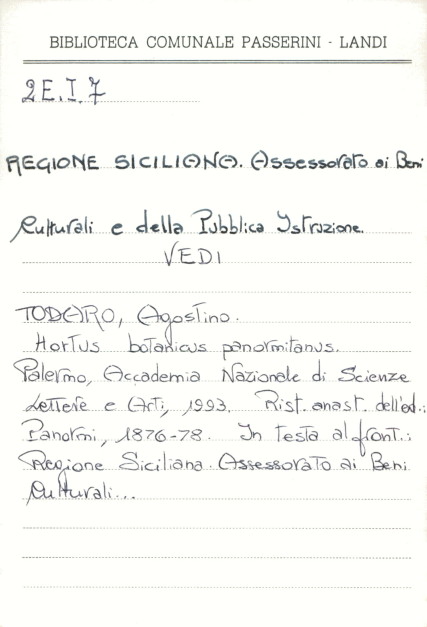 BIBLIOTECA COMUNALE PASSERINI - LANDI
2E.I.7
REGIONE SICILIANA. Assessorato ai Beni
Culturali e della Pubblica Istruzione.
VEDI
TODARO, Agostino.
Hortus botanicus panormitanus.
Palermo, Accademia Nazionale di Scienze
Lettere e Arti, 1993. Rist. anast. dell'ed.:
Panormi, 1876-78. In testa al front.:
Regione Siciliana. Assessorato ai Beni
Culturali...